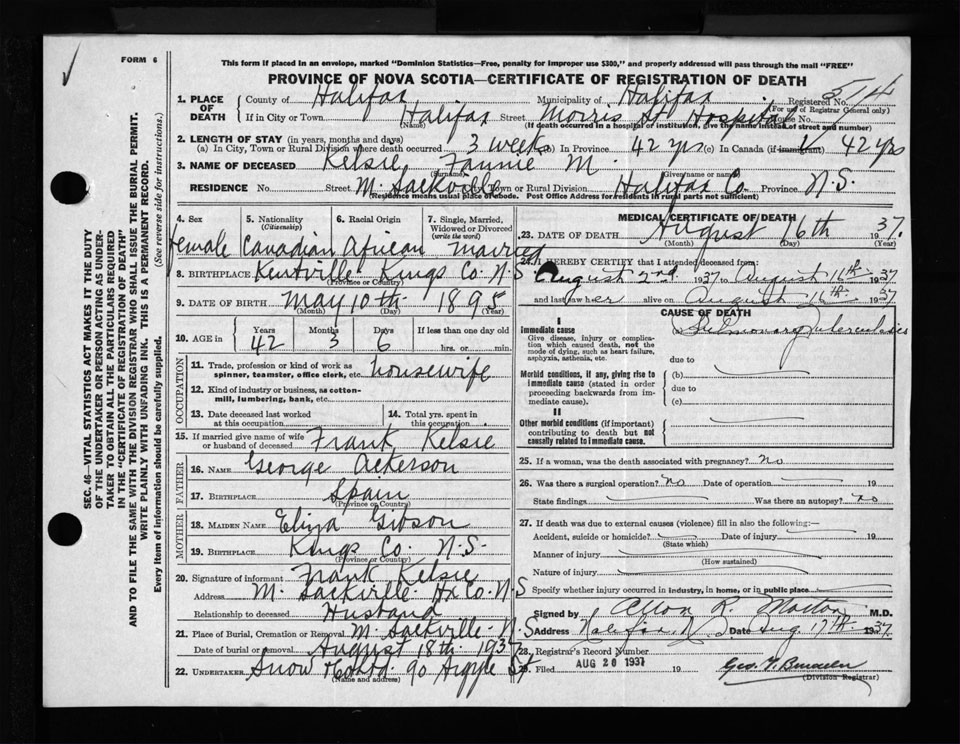 FORM 6
This form if placed in an envelope, marked "Dominion Statistics—Free, penalty for improper use $300," and properly addressed will pass through the mail "FREE"
PROVINCE OF NOVA SCOTIA—CERTIFICATE OF REGISTRATION OF DEATH
SEC. 46—VITAL STATISTICS ACT MAKES IT THE DUTY
OF THE UNDERTAKER OR PERSON ACTING AS UNDER-
TAKER TO OBTAIN ALL THE PARTICULARS REQUIRED
IN THE "CERTIFICATE OF REGISTRATION OF DEATH"
AND TO FILE THE SAME WITH THE DIVISION REGISTRAR WHO SHALL ISSUE THE BURIAL PERMIT.
WRITE PLAINLY WITH UNFADING INK. THIS IS A PERMANENT RECORD.
Every item of information should be carefully supplied. (See reverse side for instructions.)
1. PLACE OF DEATH County of Halifax Municipality of Halifax Registered No. 514
(For use of Registrar General only)
If in City or Town Halifax Street Morris St Hospital House No.
(Name) (If death occurred in a hospital or institution, give the name instead of street and number)
2. LENGTH OF STAY (in years, months and days)
(a) In City, Town or Rural Division where death occurred 3 weeks (b) In Province 42 yrs (c) In Canada (if immigrant) 42 yrs
3. NAME OF DECEASED Kelsie Fannie M.
(Surname) (Given name or names)
RESIDENCE No. Street M. Sackville City, Town or Rural Division Halifax Co. Province N.S.
(Residence means usual place of abode. Post Office Address for residents in rural parts not sufficient)
4. Sex 5. Nationality (Citizenship) 6. Racial Origin 7. Single, Married, Widowed or Divorced (write the word)
female Canadian African married
8. BIRTHPLACE Kentville Kings Co. N.S
(Province or Country)
9. DATE OF BIRTH May 10th 1895
(Month) (Day) (Year)
10. AGE in Years 42 Months 3 Days 6 If less than one day old hrs. or min.
OCCUPATION
11. Trade, profession or kind of work as spinner, teamster, office clerk, etc. housewife
12. Kind of industry or business, as cotton-mill, lumbering, bank, etc.
13. Date deceased last worked at this occupation
14. Total yrs. spent in this occupation
15. If married give name of wife or husband of deceased Frank Kelsie
FATHER
16. NAME George Ackerson
17. BIRTHPLACE Spain
(Province or Country)
MOTHER
18. MAIDEN NAME Eliza Gibson
19. BIRTHPLACE Kings Co. N.S.
(Province or Country)
20. Signature of informant Frank Kelsie
Address M. Sackville Hx Co. N S
Relationship to deceased Husband
21. Place of Burial, Cremation or Removal M. Sackville N.S
Date of burial or removal August 18th 1937
22. UNDERTAKER Snow & Co Ltd 90 Argyle St
(Name and address)
MEDICAL CERTIFICATE OF DEATH
23. DATE OF DEATH August 16th 1937.
(Month) (Day) (Year)
24. I HEREBY CERTIFY that I attended deceased from:
August 2nd 1937 to August 16th 1937
and last saw her alive on August 16th 1937
CAUSE OF DEATH
I
Immediate cause
Give disease, injury or complication which caused death, not the mode of dying, such as heart failure, asphyxia, asthenia, etc.
(a) Pulmonary Tuberculosis
due to
Morbid conditions, if any, giving rise to immediate cause (stated in order proceeding backwards from immediate cause).
(b)
due to
(c)
II
Other morbid conditions (if important) contributing to death but not causally related to immediate cause.
25. If a woman, was the death associated with pregnancy? no
26. Was there a surgical operation? no Date of operation
State findings Was there an autopsy? no
27. If death was due to external causes (violence) fill in also the following:—
Accident, suicide or homicide? Date of injury 19
(State which)
Manner of injury
(How sustained)
Nature of injury
Specify whether injury occurred in industry, in home, or in public place
Signed by R. Morton M.D.
Address Halifax N.S. Date Aug. 17th 1937.
28. Registrar's Record Number
29. Filed AUG 20 1937 19
(Division Registrar)